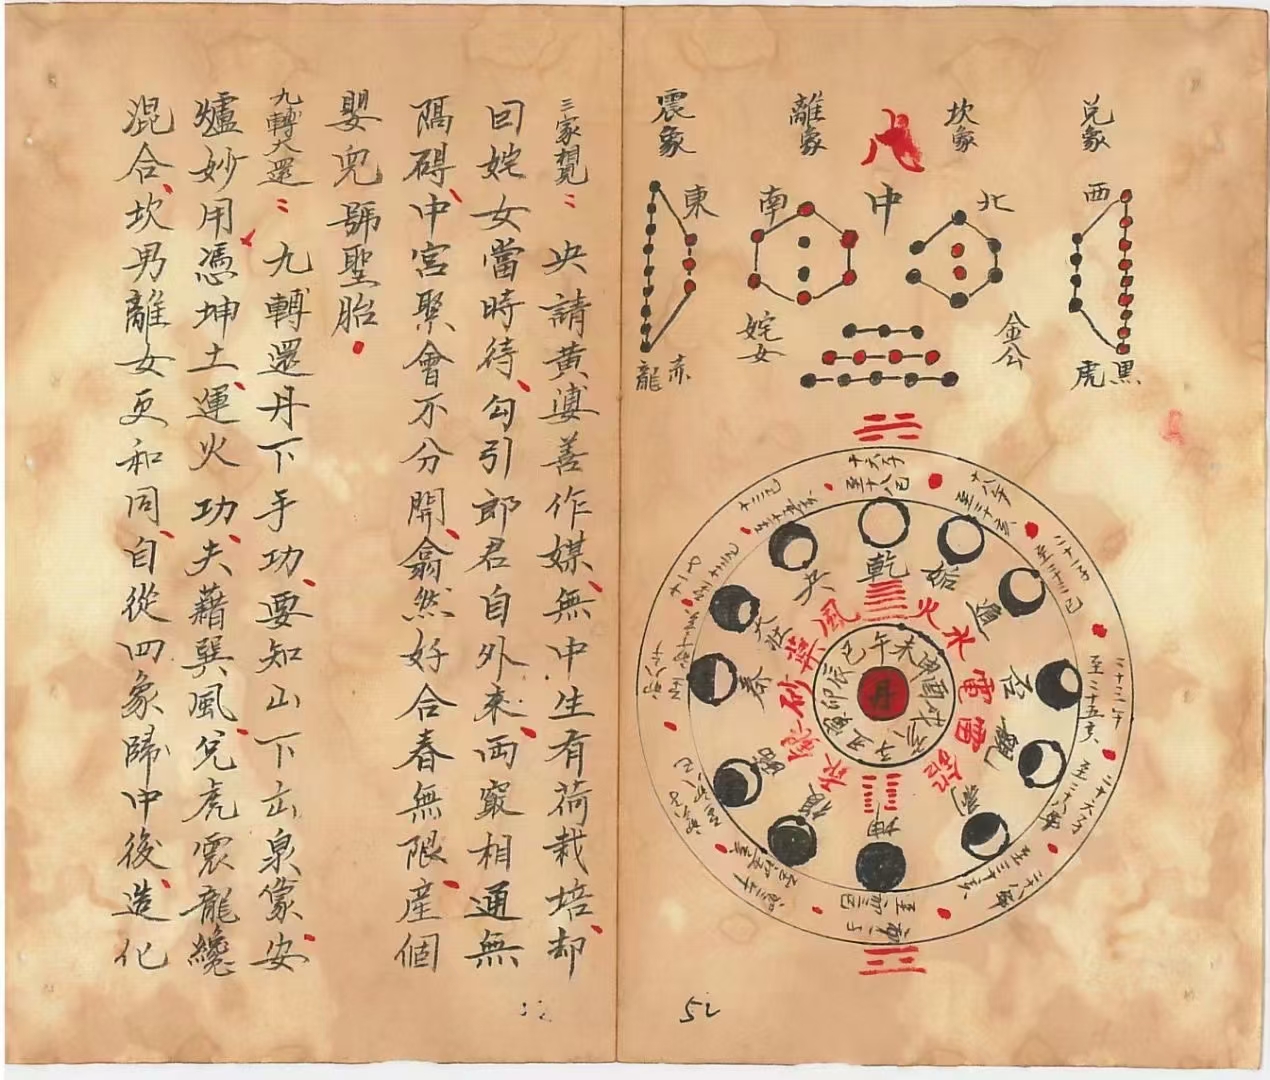 兌象
坎象
離象
震象
西
北
中
南
東
黑虎
金公
姹女
赤龍
乾
姤
遯
否
觀
剝
坤
復
臨
泰
大壯
夬
火
水
風
砂
汞
鉛
雷
午未申酉戌亥子丑寅卯辰巳
丹
52
三家相見 央請黃婆善作媒、無中生有荷栽培、却
回姹女當時待、勾引郎君自外來、両竅相通無
隔碍、中宮聚會不分開、翕然好合春無限、産個
嬰兒號聖胎
九轉大還 九轉還丹下手功、要知山下出泉像、安
爐妙用憑坤土、運火功夫藉巽風、兌虎震龍纔
混合、坎男離女更和同、自從四象歸中後、造化